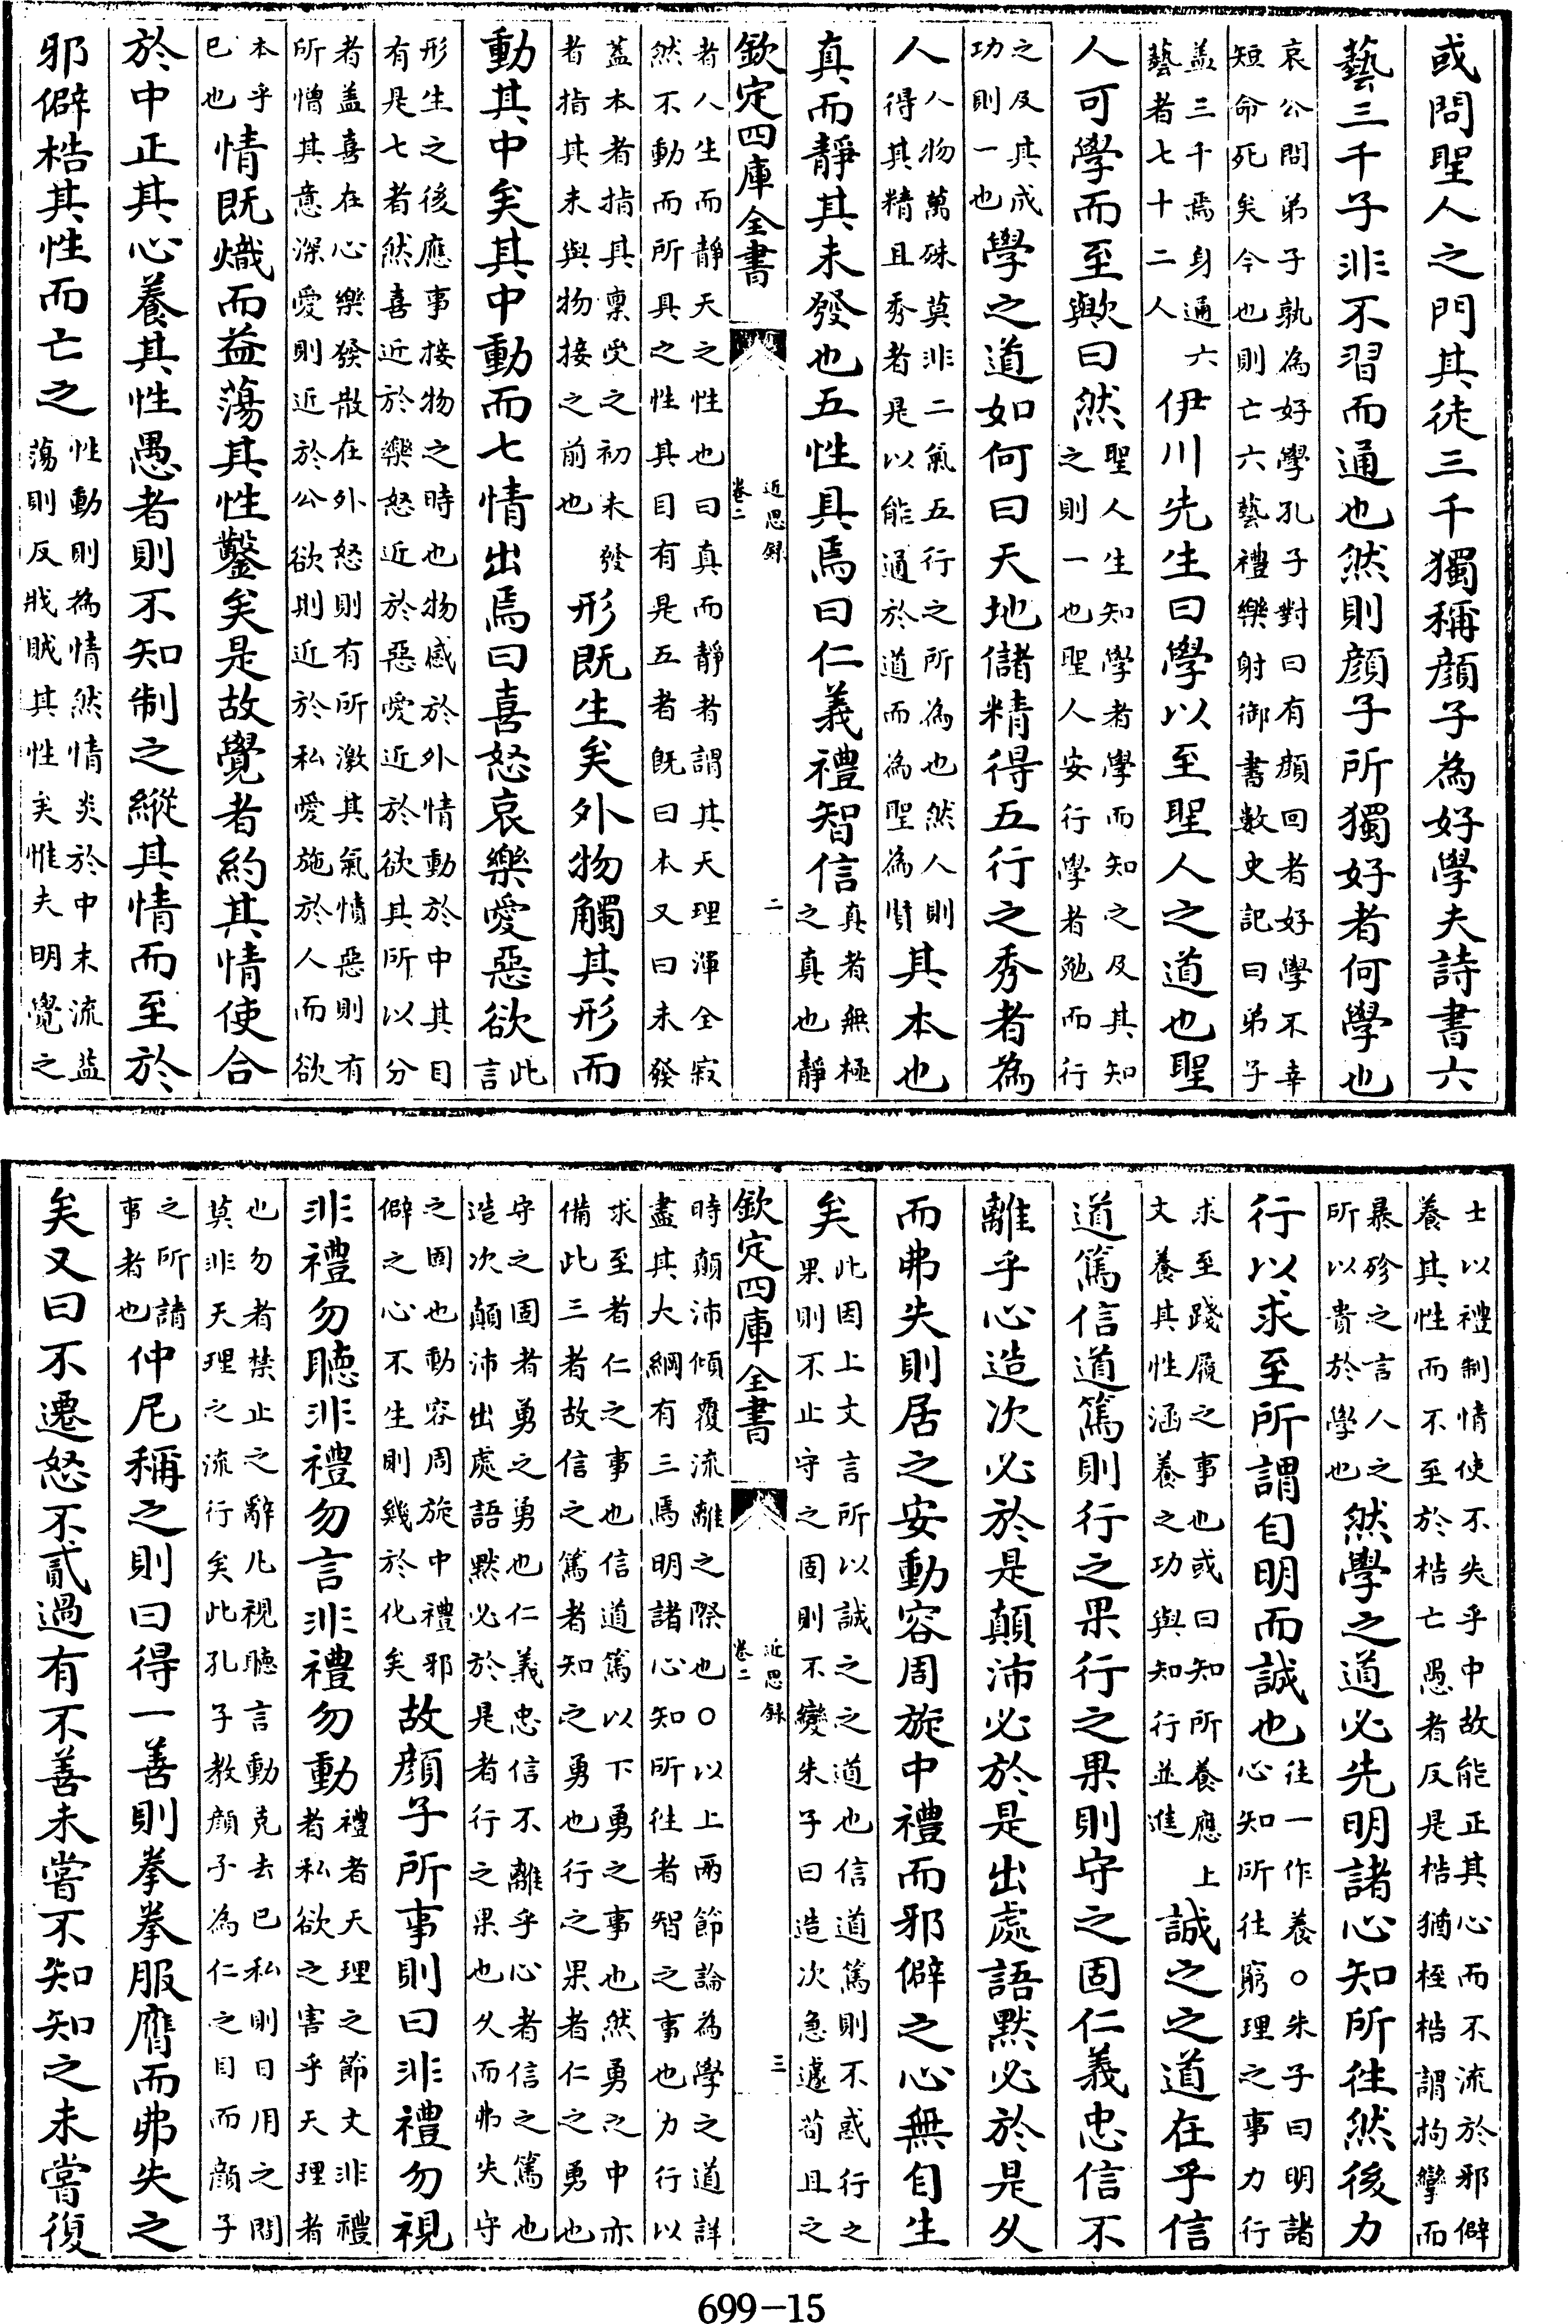 或問聖人之門其徒三千獨稱顔子為好學夫詩書六
藝三千子非不習而通也然則顔子所獨好者何學也
哀公問弟子孰為好學孔子對曰有顔回者好學不幸
短命死矣今也則亡六藝禮樂射御書數史記曰弟子
蓋三千焉身通六
藝者七十二人
伊川先生曰學以至聖人之道也聖
人可學而至歟曰然
聖人生知學者學而知之及其知
之則一也聖人安行學者勉而行
之及其成
功則一也
學之道如何曰天地儲精得五行之秀者為
人
人物萬殊莫非二氣五行之所為也然人則
得其精且秀者是以能通於道而為聖為賢
其本也
真而靜其未發也五性具焉曰仁義禮智信
真者無極
之真也靜
欽定四庫全書
近思録
卷二
二
者人生而靜天之性也曰真而靜者謂其天理渾全寂
然不動而所具之性其目有是五者既曰本又曰未發
蓋本者指其稟受之初未發
者指其未與物接之前也
形既生矣外物觸其形而
動其中矣其中動而七情出焉曰喜怒哀樂愛惡欲
此
言
形生之後應事接物之時也物感於外情動於中其目
有是七者然喜近於樂怒近於惡愛近於欲其所以分
者蓋喜在心樂發散在外怒則有所激其氣憤惡則有
所憎其意深愛則近於公欲則近於私愛施於人而欲
本乎
已也
情既熾而益蕩其性鑿矣是故覺者約其情使合
於中正其心養其性愚者則不知制之縱其情而至於
邪僻梏其性而亡之
性動則為情然情炎於中末流益
蕩則反戕賊其性矣惟夫明覺之
士以禮制情使不失乎中故能正其心而不流於邪僻
養其性而不至於梏亡愚者反是梏猶桎梏謂拘攣而
暴殄之言人之
所以貴於學也
然學之道必先明諸心知所往然後力
行以求至所謂自明而誠也
往一作養○朱子曰明諸
心知所往窮理之事力行
求至踐履之事也或曰知所養應上
文養其性涵養之功與知行並進
誠之之道在乎信
道篤信道篤則行之果行之果則守之固仁義忠信不
離乎心造次必於是顛沛必於是出處語默必於是久
而弗失則居之安動容周旋中禮而邪僻之心無自生
矣
此因上文言所以誠之之道也信道篤則不惑行之
果則不止守之固則不變朱子曰造次急遽苟且之
欽定四庫全書
近思録
卷二
三
時顛沛傾覆流離之際也○以上兩節論為學之道詳
盡其大綱有三焉明諸心知所往者智之事也力行以
求至者仁之事也信道篤以下勇之事也然勇之中亦
備此三者故信之篤者知之勇也行之果者仁之勇也
守之固者勇之勇也仁義忠信不離乎心者信之篤也
造次顛沛出處語默必於是者行之果也久而弗失守
之固也動容周旋中禮邪
僻之心不生則幾於化矣
故顔子所事則曰非禮勿視
非禮勿聽非禮勿言非禮勿動
禮者天理之節文非禮
者私欲之害乎天理者
也勿者禁止之辭凡視聽言動克去已私則日用之間
莫非天理之流行矣此孔子教顔子為仁之目而顔子
之所請
事者也
仲尼稱之則曰得一善則拳拳服膺而弗失之
矣又曰不遷怒不貳過有不善未嘗不知知之未嘗復
699-15